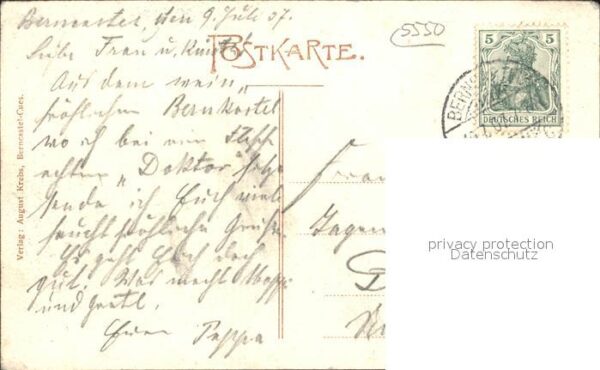 Berncastel, den 9. Juli 07.
5550
Liebe Frau u. Kinder
POSTKARTE.
5 5
DEUTSCHES REICH
BERNC
Aus dem wein
fröhlichen Bernkastel
wo ich bei einer Flasche
echten "Doktor" sitze
sende ich Euch viele
feucht fröhliche Grüße.
Es geht Euch doch
gut. Was macht
und Gretl.
Euer Pappa
Frau
Verlag: August Krebs, Berncastel-Cues.
privacy protection
Datenschutz